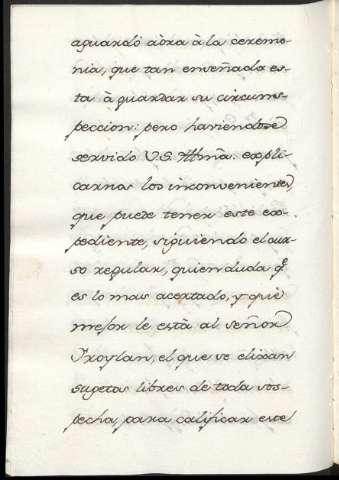 aguardó aòra à la ceremo-
nia, que tan enseñada es-
ta à guardar su circuns-
peccion: pero haviendose
servido V.S. Illmã. expli-
carnos los inconvenientes,
que puede tener este ex-
pediente, siguiendo el cur-
so regular, quien duda q.e
es lo mas acertado, y què
mejor le està al señor
Froylan, el que se elixan
sugetos libres de toda sos-
pecha, para calificar este